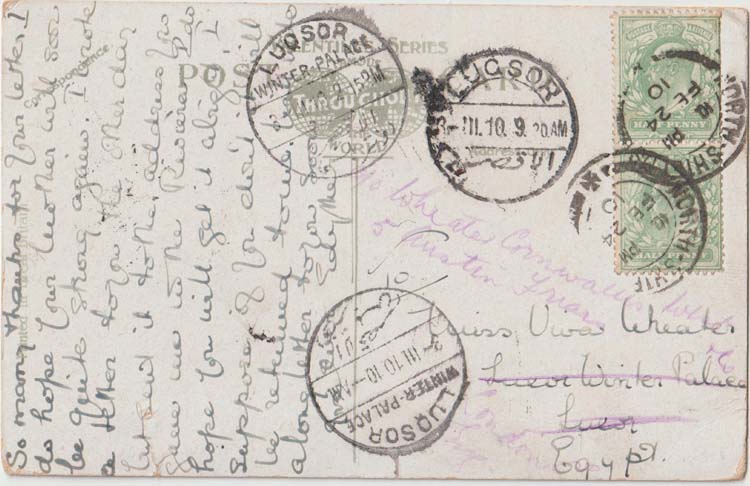 So many thanks for your letter. I
do hope your mother will soon
be quite strong again. I wrote
a letter to you the other day
but sent it to the address you
gave me in the Riviera. I do
hope you will get it alright. I
suppose if you don't it will
be returned to me. I will
letter to you soon
POST CARD
LUQSOR
WINTER-PALACE
LUQSOR
III.10. 9. 20AM
LUQSOR
WINTER-PALACE
III.10.10-AM
HALF PENNY
HALF PENNY
NORTH SHIELDS
FE 24
10
NORTH SHIELDS
FE 24
10
c/o Wheater Cornwallis
5 Austin Friars
London
Miss Viva Wheater
Luxor Winter Palace
Luxor
Egypt.